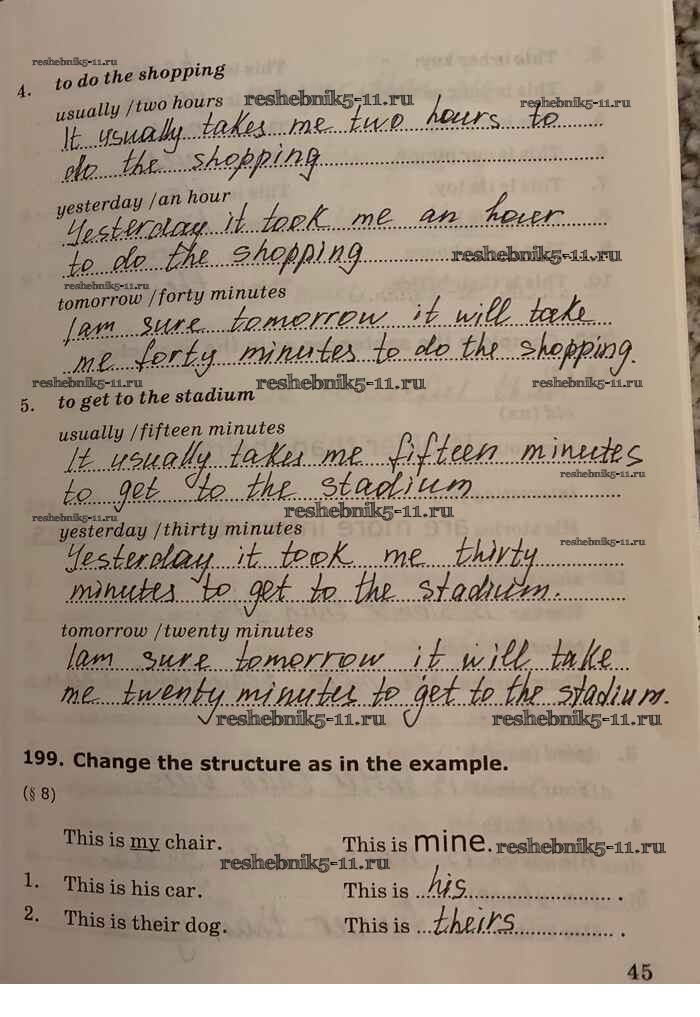 reshebnik5-11.ru
4. to do the shopping
usually /two hours reshebnik5-11.ru reshebnik5-11.ru
It usually takes me two hours to
do the shopping
yesterday /an hour
Yesterday it took me an hour
to do the shopping reshebnik5-11.ru
reshebnik5-11.ru
tomorrow /forty minutes
I am sure tomorrow it will take
me forty minutes to do the shopping.
reshebnik5-11.ru reshebnik5-11.ru reshebnik5-11.ru
5. to get to the stadium
usually /fifteen minutes
It usually takes me fifteen minutes
reshebnik5-11.ru
to get to the stadium
reshebnik5-11.ru reshebnik5-11.ru
yesterday /thirty minutes
reshebnik5-11.ru
Yesterday it took me thirty
minutes to get to the stadium.
tomorrow /twenty minutes
I am sure tomorrow it will take
me twenty minutes to get to the stadium.
reshebnik5-11.ru reshebnik5-11.ru
199. Change the structure as in the example.
(§ 8)
This is my chair. This is mine. reshebnik5-11.ru
reshebnik5-11.ru
1. This is his car. This is his.
2. This is their dog. This is theirs.
45